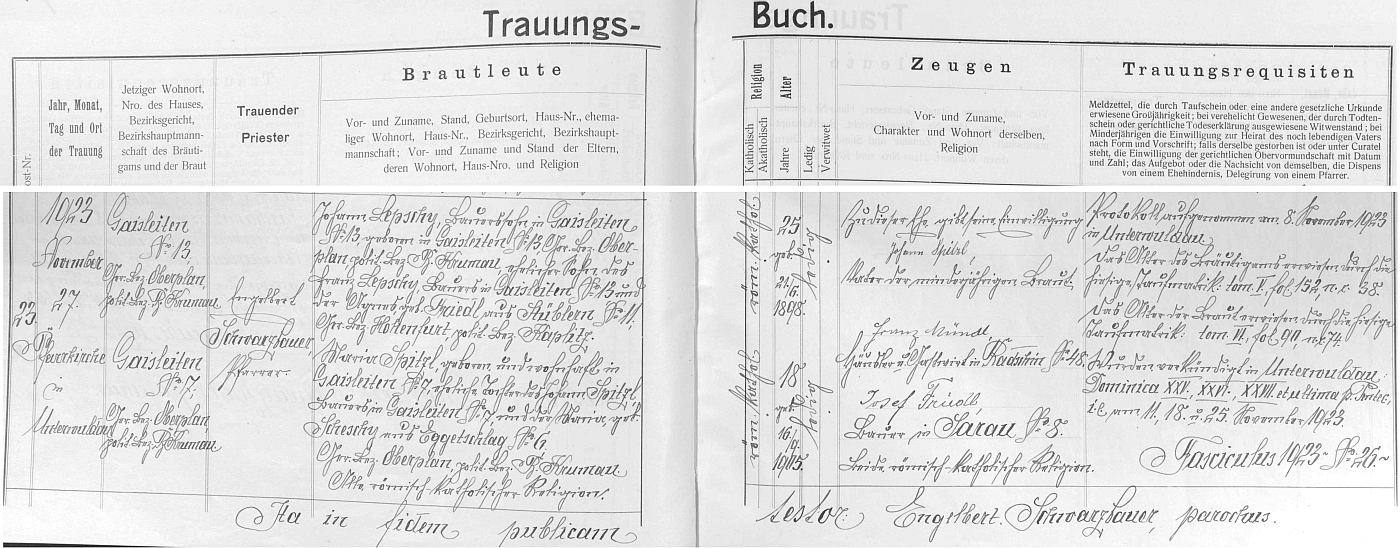 Trauungs-
Buch.
Post-Nr.
Jahr, Monat,
Tag und Ort
der Trauung
Jetziger Wohnort,
Nro. des Hauses,
Bezirksgericht,
Bezirkshauptmann-
schaft des Bräuti-
gams und der Braut
Trauender
Priester
Brautleute
Vor- und Zuname, Stand, Geburtsort, Haus-Nr., ehema-
liger Wohnort, Haus-Nr., Bezirksgericht, Bezirkshaupt-
mannschaft; Vor- und Zuname und Stand der Eltern,
deren Wohnort, Haus-Nro. und Religion
Religion
Katholisch
Akatholisch
Alter
Jahre
Ledig
Verwitwet
Zeugen
Vor- und Zuname,
Charakter und Wohnort derselben,
Religion
Trauungsrequisiten
Meldzettel, die durch Taufschein oder eine andere gesetzliche Urkunde
erwiesene Großjährigkeit; bei verehelicht Gewesenen, der durch Todten-
schein oder gerichtliche Todeserklärung ausgewiesene Witwenstand; bei
Minderjährigen die Einwilligung zur Heirat des noch lebendigen Vaters
nach Form und Vorschrift; falls derselbe gestorben ist oder unter Curatel
steht, die Einwilligung der gerichtlichen Obervormundschaft mit Datum
und Zahl; das Aufgebot oder die Nachsicht von demselben, die Dispens
von einem Ehehindernis, Delegirung von einem Pfarrer.
23.
1923
November
27.
Pfarrkirche
in
Unterwuldau
Gaisleiten
No. 13,
Ger. Bez. Oberplan,
polit. Bez. B. Krumau.
Gaisleiten
No. 7,
Ger. Bez. Oberplan
polit. Bez. B. Krumau
Engelbert
Schwarzbauer,
Pfarrer.
Johann Lepschy, Bauerssohn in Gaisleiten
No. 13, geboren in Gaisleiten No. 13, Ger. Bez. Ober-
plan, polit. Bez. B. Krumau, ehelicher Sohn des
Franz Lepschy, Bauers in Gaisleiten No. 13 und
der Agnes geb. Friedl aus Stüblern No. 11,
Ger. Bez. Hohenfurt, polit. Bez. Kaplitz.
Maria Spitzl, geboren und wohnhaft in
Gaisleiten No. 7, eheliche Tochter des Johann Spitzl,
Bauers in Gaisleiten No. 7 und der Maria, geb.
Screschy aus Eggetschlag No. 6,
Ger. Bez. Oberplan, polit. Bez. B. Krumau.
Alle römisch-katholischer Religion.
röm. kathol.
25
geb.
21/6.
1898.
ledig
röm. kathol.
18
geb.
16/9.
1905.
ledig
Zu dieser Ehe gibt seine Einwilligung
Johann Spitzl,
Vater der minderjährigen Braut.
Franz Mündl,
Häusler u. Gastwirt in Radschin No. 48.
Josef Friedl,
Bauer in Sarau No. 8.
Beide römisch-katholischer Religion.
Protokoll aufgenommen am 8. November 1923
in Unterwuldau.
Das Alter des Bräutigams erwiesen durch die
hiesige Taufmatrik: tom. V. fol. 152, n. c. 38.
Das Alter der Braut erwiesen durch die hiesige
Taufmatrik: tom. VI. fol. 90, n. c. 74.
Wurden verkündigt in Unterwuldau:
Dominica XXV., XXVI., XXVII. et ultima p. Pentec.
i. e. am 11., 18. u. 25. November 1923.
Fasciculus 1923 - No. 26. -
Ita in fidem publicam
testor: Engelbert Schwarzbauer, parochus.